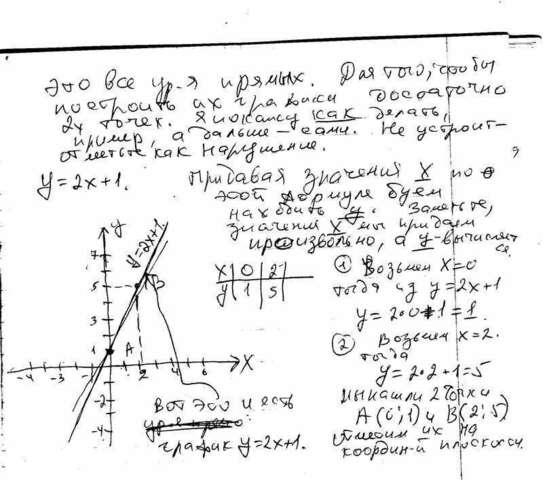 Это все ур-я прямых. Для того, чтобы
построить их графики достаточно
2х точек. Я покажу как делать,
пример, а дальше – сами. Не устроит –
отметьте как нарушение.
y = 2x+1. Придавая значения X по
этой формуле буем
находить y. Заметьте,
значения X мы придаем
произвольно, а y - вычисляется.
y
y=2x+1
7
5
3
1
A
B
-4 -2 2 4 6 X
-2
-4
X 0 2
y 1 5
① Возьмем X=0
тогда из y=2x+1
y=2·0+1=1.
② Возьмем x=2.
тогда
y=2·2+1=5
Мы нашли 2 точки
A(0;1) и B(2;5)
Отметим их на
координ-й плоскости.
Вот это и есть
график y=2x+1.